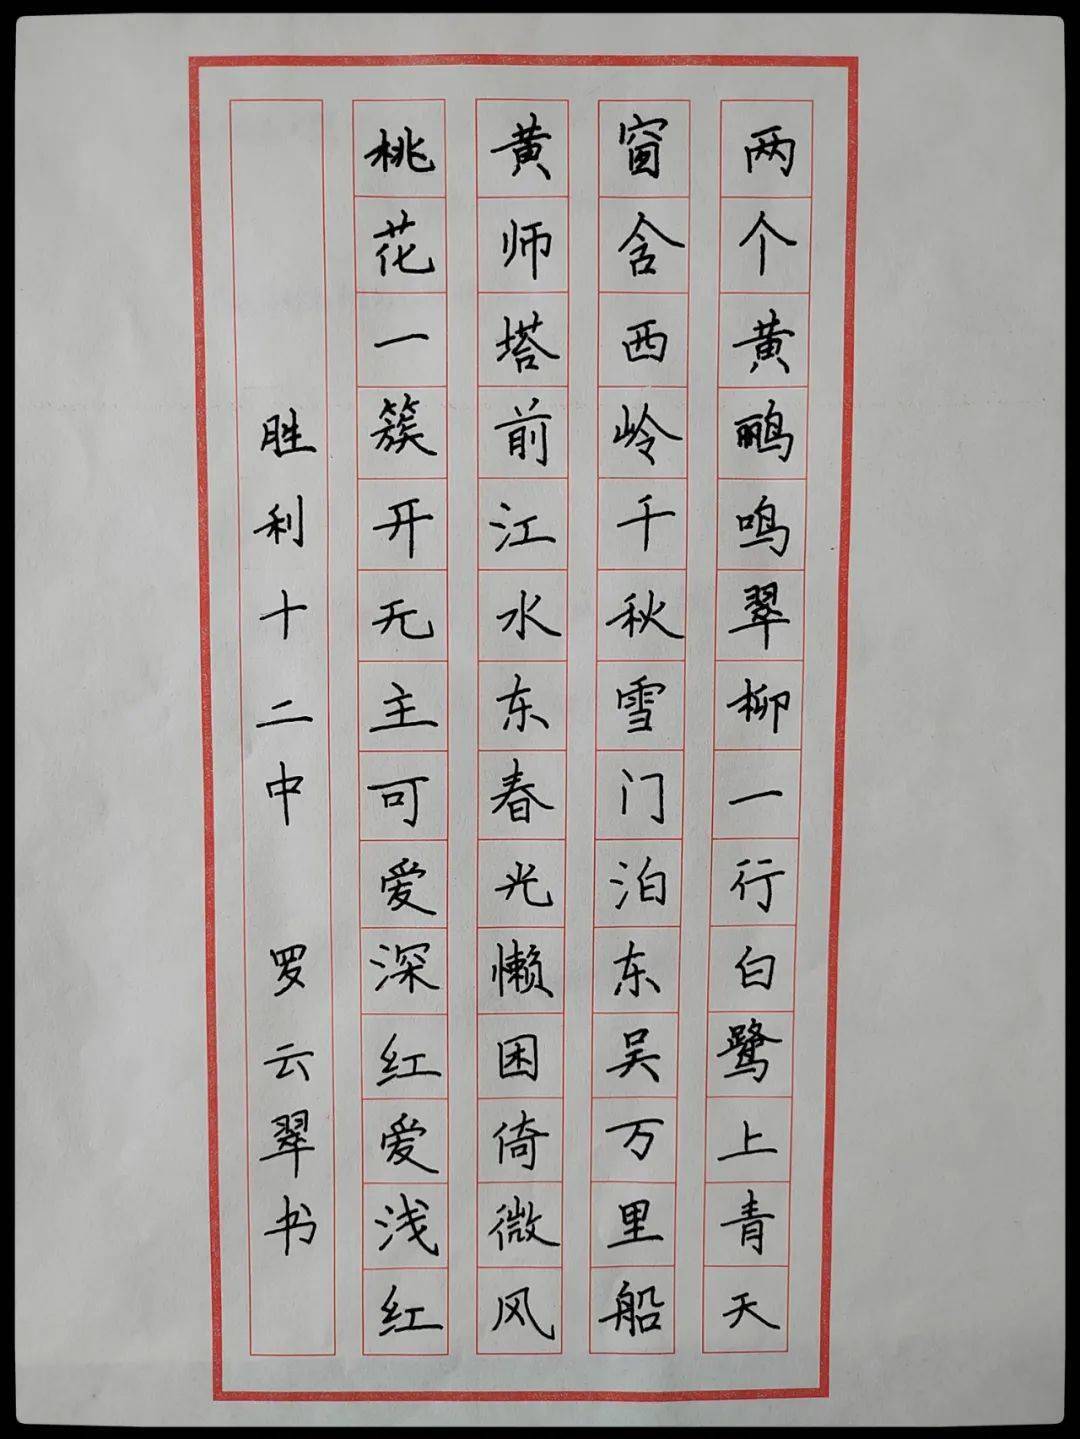 两个黄鹂鸣翠柳一行白鹭上青天
窗含西岭千秋雪门泊东吴万里船
黄师塔前江水东春光懒困倚微风
桃花一簇开无主可爱深红爱浅红
胜利十二中 罗云翠书